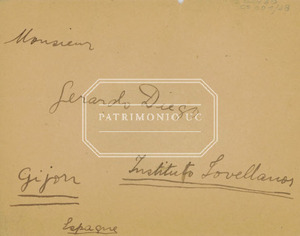 Monsieur
Gerardo Diego
PATRIMONIO UC
Instituto Jovellanos
Gijon
Espagne